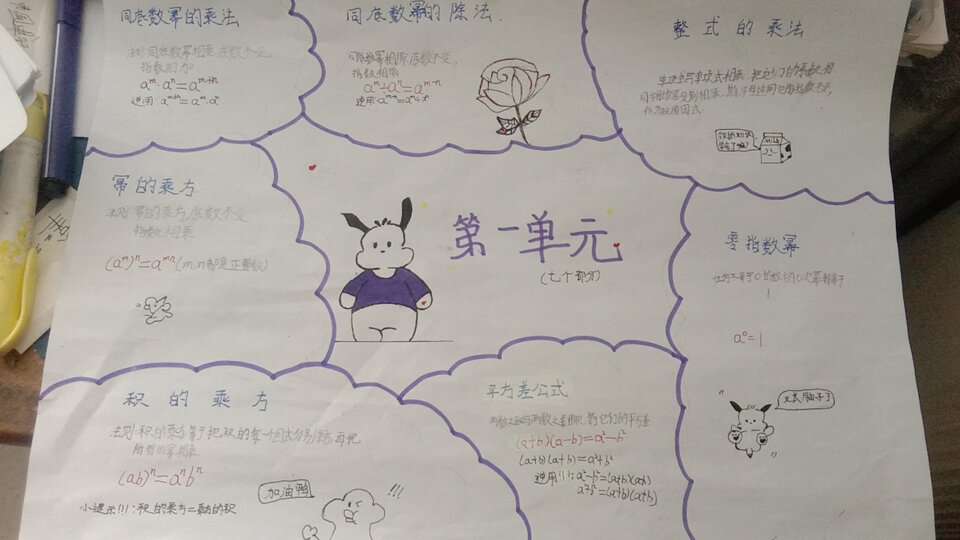 同底数幂的乘法
法则:同底数幂相乘,底数不变,
指数相加
aᵐ·aⁿ=aᵐ⁺ⁿ
逆用:aᵐ⁺ⁿ=aᵐ·aⁿ
同底数幂的除法.
同底数幂相除,底数不变,
指数相减
aᵐ÷aⁿ=aᵐ⁻ⁿ
逆用:aᵐ⁻ⁿ=aᵐ÷aⁿ
整式的乘法
单项式与单项式相乘,把它们的系数、相
同字母的幂分别相乘,
作为积的因式.
MILK
幂的乘方
法则:幂的乘方,底数不变
指数相乘
(aᵐ)ⁿ=aᵐⁿ(m,n都是正整数)
第一单元
(七个部分)
零指数幂
任何不等于0的数的0次幂都等于
1
a⁰=1
积的乘方
法则:积的乘方等于把积的每一个因式分别乘方,再把
所得的幂相乘
(ab)ⁿ=aⁿbⁿ
小提示!!!:积的乘方=乘方的积
加油鸭
!!!
平方差公式
两数之和与两数之差的积,等于它们的平方差
(a+b)(a-b)=a²-b²
(a+b)(a+b)=a²+b²
逆用